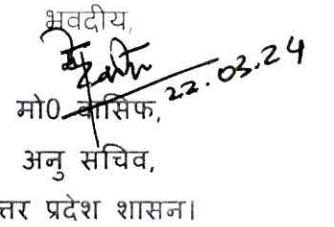 भवदीय,
22.03.24
मो0 वासिफ,
अनु सचिव,
त्तर प्रदेश शासन।